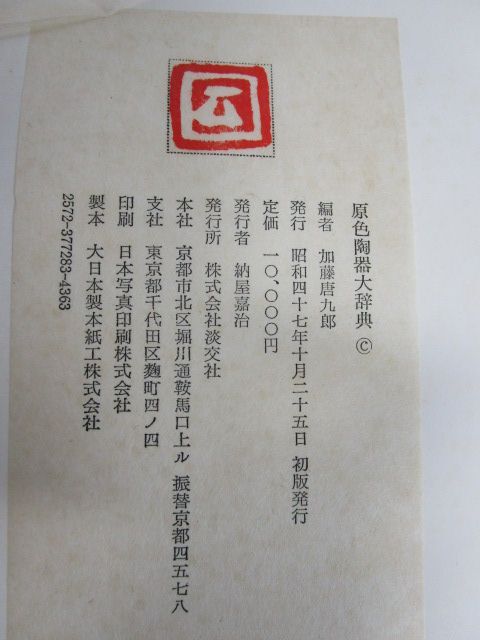 原色陶器大辞典 ©
編者 加藤唐九郎
発行 昭和四十七年十月二十五日 初版発行
定価 一〇、〇〇〇円
発行者 納屋嘉治
発行所 株式会社淡交社
本社 京都市北区堀川通鞍馬口上ル 振替京都四五七八
支社 東京都千代田区麴町四ノ四
印刷 日本写真印刷株式会社
製本 大日本製本紙工株式会社
2572-377283-4363